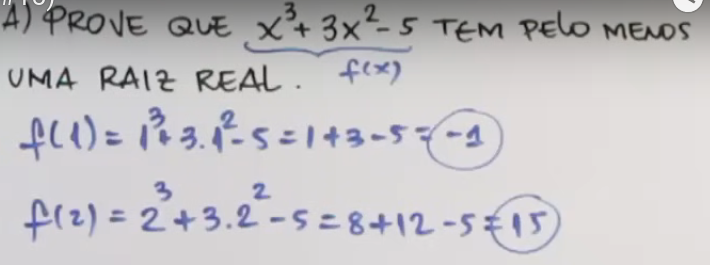 A) PROVE QUE x³+ 3x²- 5 TEM PELO MENOS
f(x)
UMA RAIZ REAL.
f(1) = 1³+ 3.1²- 5 = 1+3-5 = -1
f(2) = 2³+3.2²-5 = 8+12-5 = 15